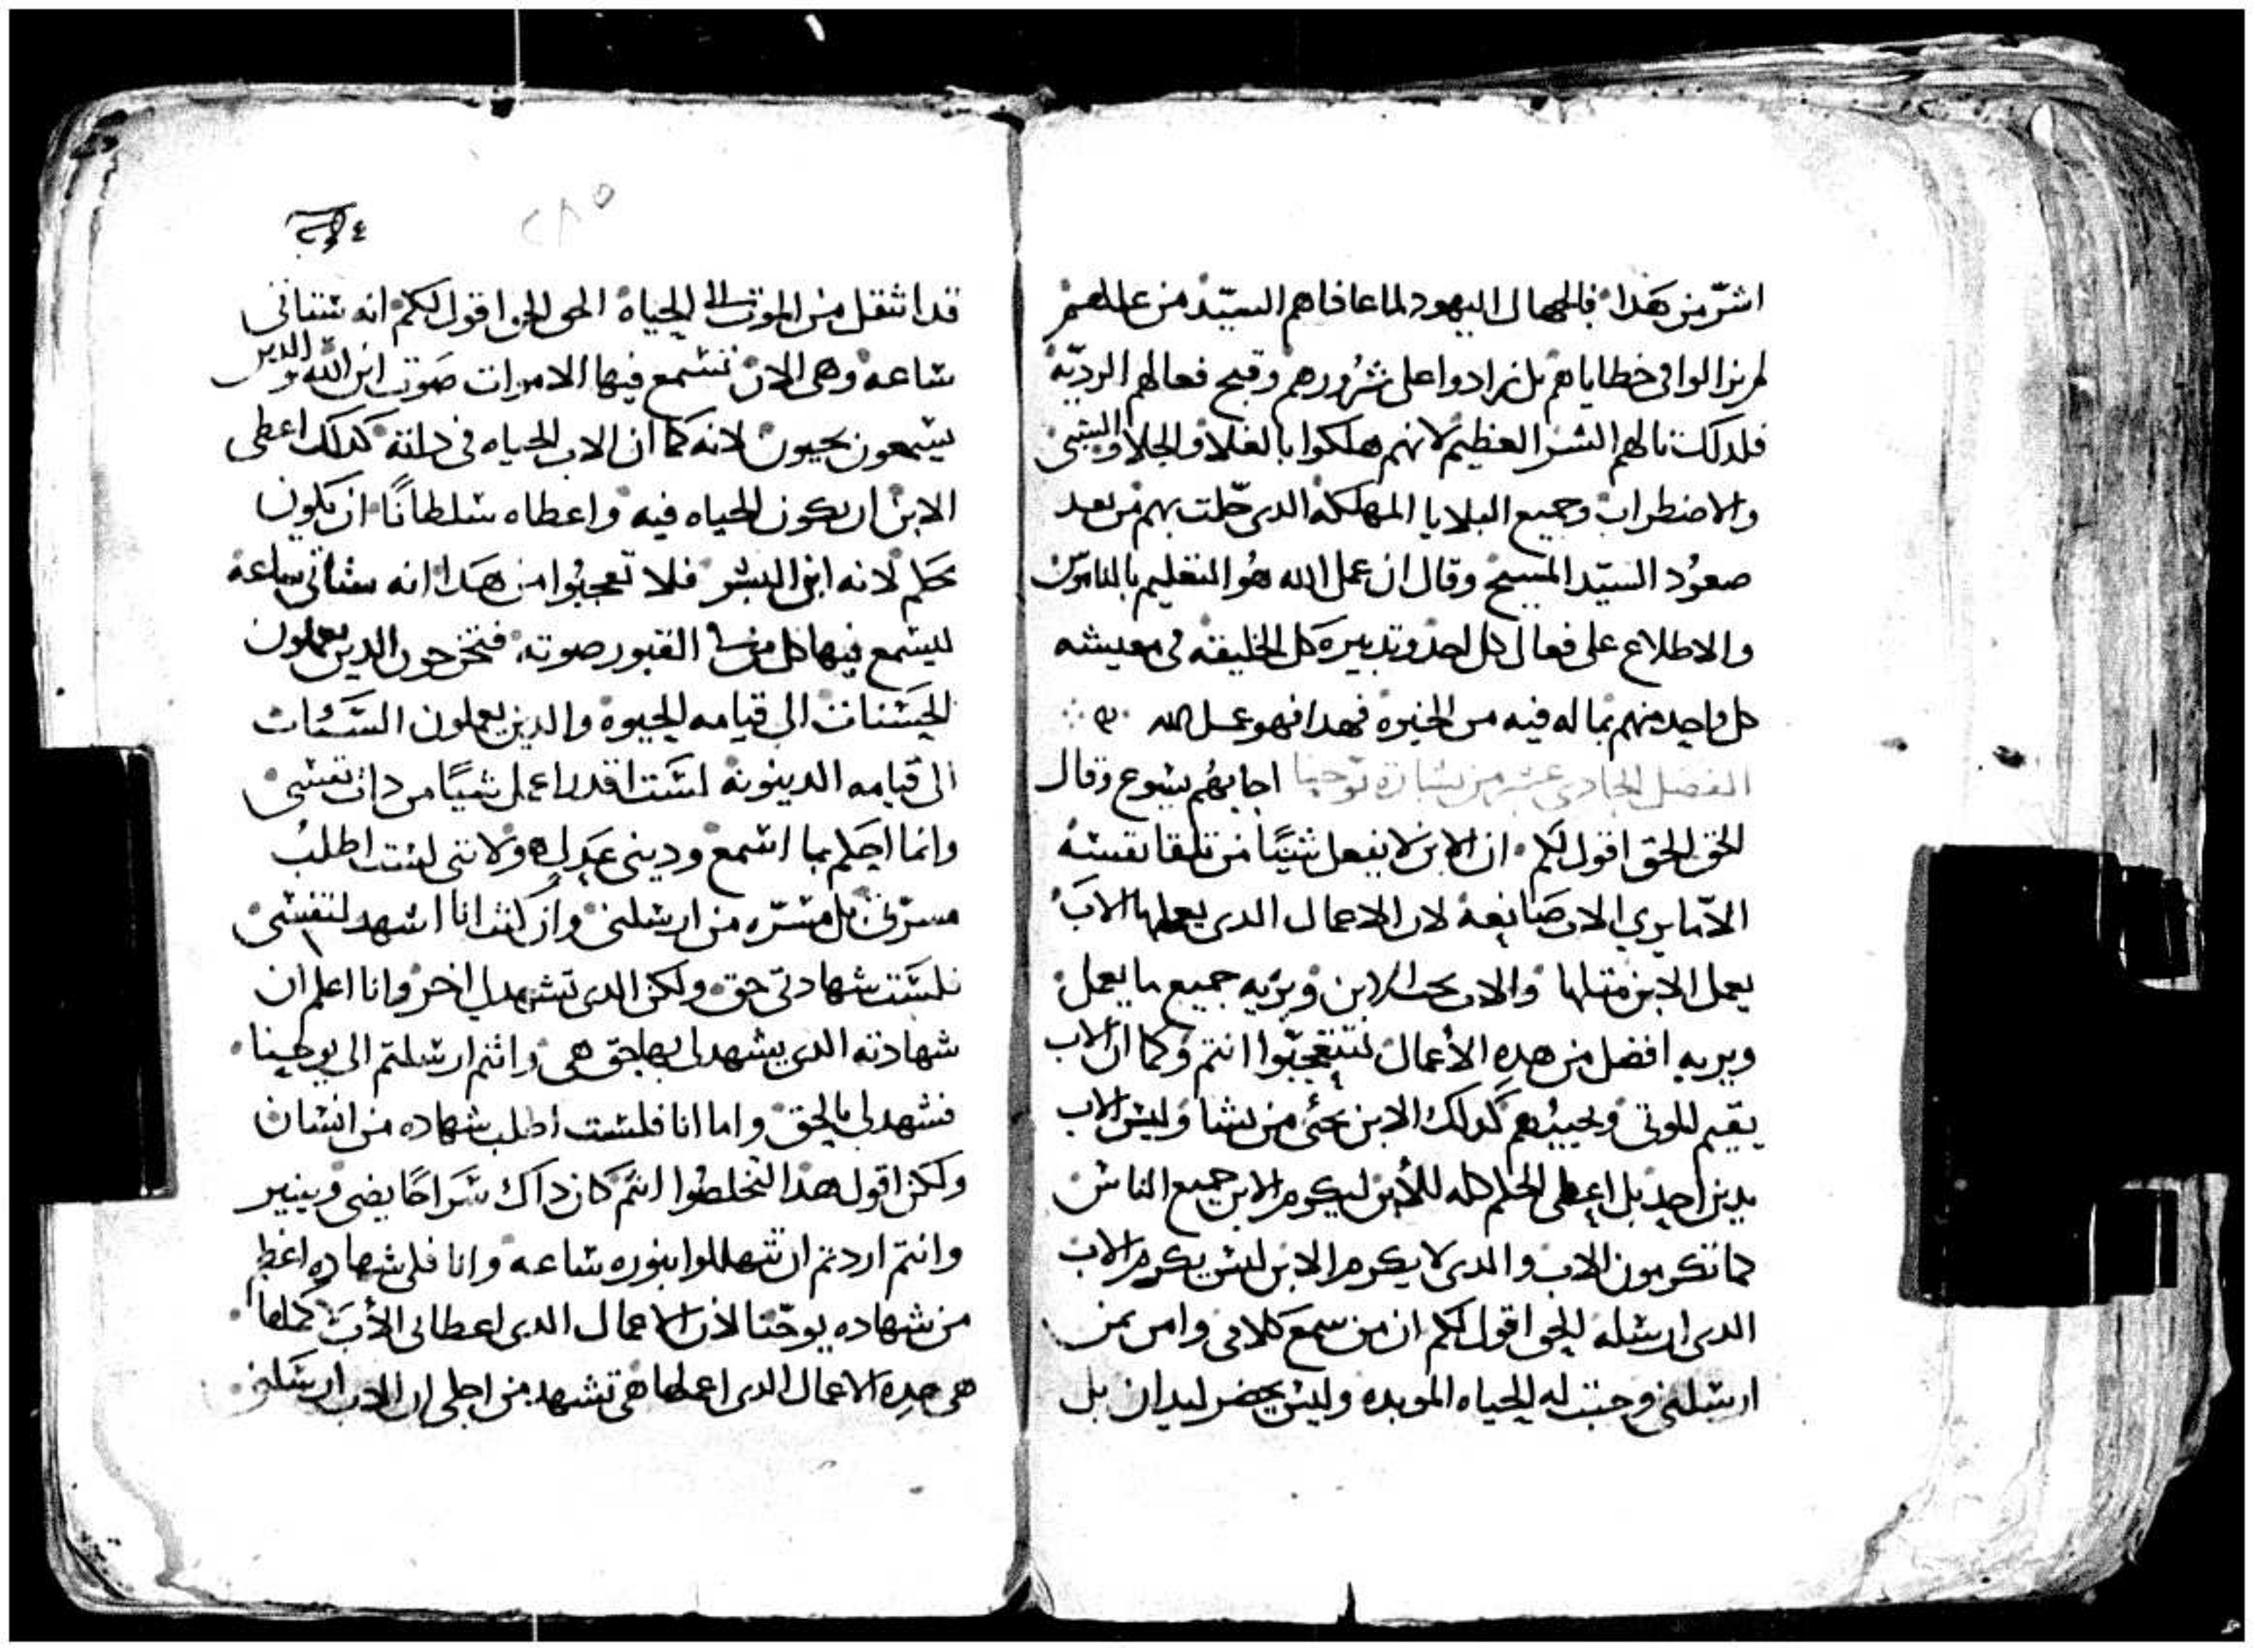 اشرّ من هَذا فالجهال اليهود لما عافاهم السيّد من عللهم
لم يزالوا في خطاياهم بل زادوا على شرُورهم وقبح فعالهم الرديّه
فلدلك نالهم الشر العظيم لانهم هلكوا بالغلا والجلا والسبى
والاضطراب وجميع البلايا المهلكه الدى حّلت بهم من بعد
صعوُد السيّد المسيح وقال ان عمل الله هُو التعليم بالناموس
والاطلاع على فعال كل احد وتدبيره كل الخليقه فى معيشه
كل واحد منهم بما له فيه من الخيره فهدا فهو عمل الله
الفصل الحادى عشر من بشارة يوحنا اجابهُم يسوع وقال
الحق الحق اقول لكم ان الابن لا يفعل شيًا من تلقا نفسه
الاّ ما يرى الاب صَانِعهُ لان الاعمال الدى يعملها الابَ
يعمل الابن مثلها والاب يحب الابن ويُريه جميع ما يعمل
ويريه افضل من هدِه الأعمال لتتعجبّوا انتم وكما ان الاب
يقيم الموتى ويحييُهم كَدلك الابن يحيُي من يشا وَليس الاب
يدين احد بل اعطى الحكم كله للأبن ليكرم الابن جميع الناس
كما تكرمون الاب والدى لا يكرم الابن ليس يكرم الاب
الدى ارسله الحق اقول لكم ان من سمعَ كلامى وامن بمن
ارسلنى وجبت له الحياه الموبده وليس يحضر ليدان بل
٢٨٥
قد انتقل من الموت الى الحياة الحق الحق اقول لكم انه ستاتى
ساعه وهى الان تسمع فيها الاموات صَوت ابن الله والدين
يسمعون يحيون لانه كما ان الاب الحياه فى داته كدلك اعطى
الابن ان يكون الحياه فيه واعطاه سلطانًا ان يكون
يحكم لانه ابن البشر فلا تعجبُوا من هَدا انه ستاتى ساعه
ليسمع فيها كل من فى القبور صوته فتخرجون الدين يعملون
الحَسنات الى قيامه الحيوة والدين يعملون السَّئات
الى قيامه الدينونه لسَت اقدر اعمل شيًا من دات نفسى
وانما احكم بما اسمع ودينى عَدلٍ هو لانى لست اطلبُ
مسرّتى بل مسّره من ارسلنى وان كنت انا اشهد لنفسى
فلسَت شهادتى حق ولكن الدى تشهد لى اخر وانا اعلم ان
شهادته الدى يشهد لى بها حق هى وانتم ارسلتم الى يوحنا
فشهد لى بالحق واما انا فلست اطلب شهاده من انسان
ولكن اقول هذا لتخلصُوا انتم كان داك سَراجًا يضى وينير
وانتم اردتم ان تتهللوا بنوره ساعه وانا فلى شهاده اعظم
من شهاده يوحّنا لان الاعمال الدى اعطانى الأبَ لاكملها
هى هدِه الاعمال الدى اعملها هى تشهد من اجلى ان الاب ارسَلنى